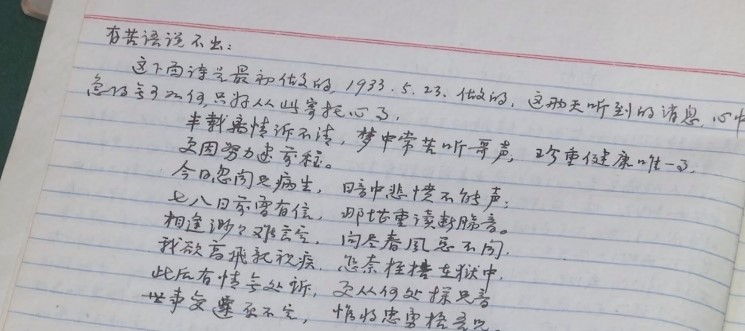 有苦语说不出：
这下面诗是最初做的，1933.5.23.做的，这两天听到的消息，心中
急得无可如何，只好从此寄托心了，
半载离情诉不清，梦中常苦听哥声，珍重健康唯一了，
文因努力述前程。
今日忽闻兄病生，暗中悲愤不能声；
七八日前曾有信，那堪重读断肠音。
相逢渺々难言定，问尽春风总不闻，
我欲高飞视疾，怎奈桎梏在狱中，
此后有情无处诉，更从何处探兄音
世事变迁不定，惟将忠